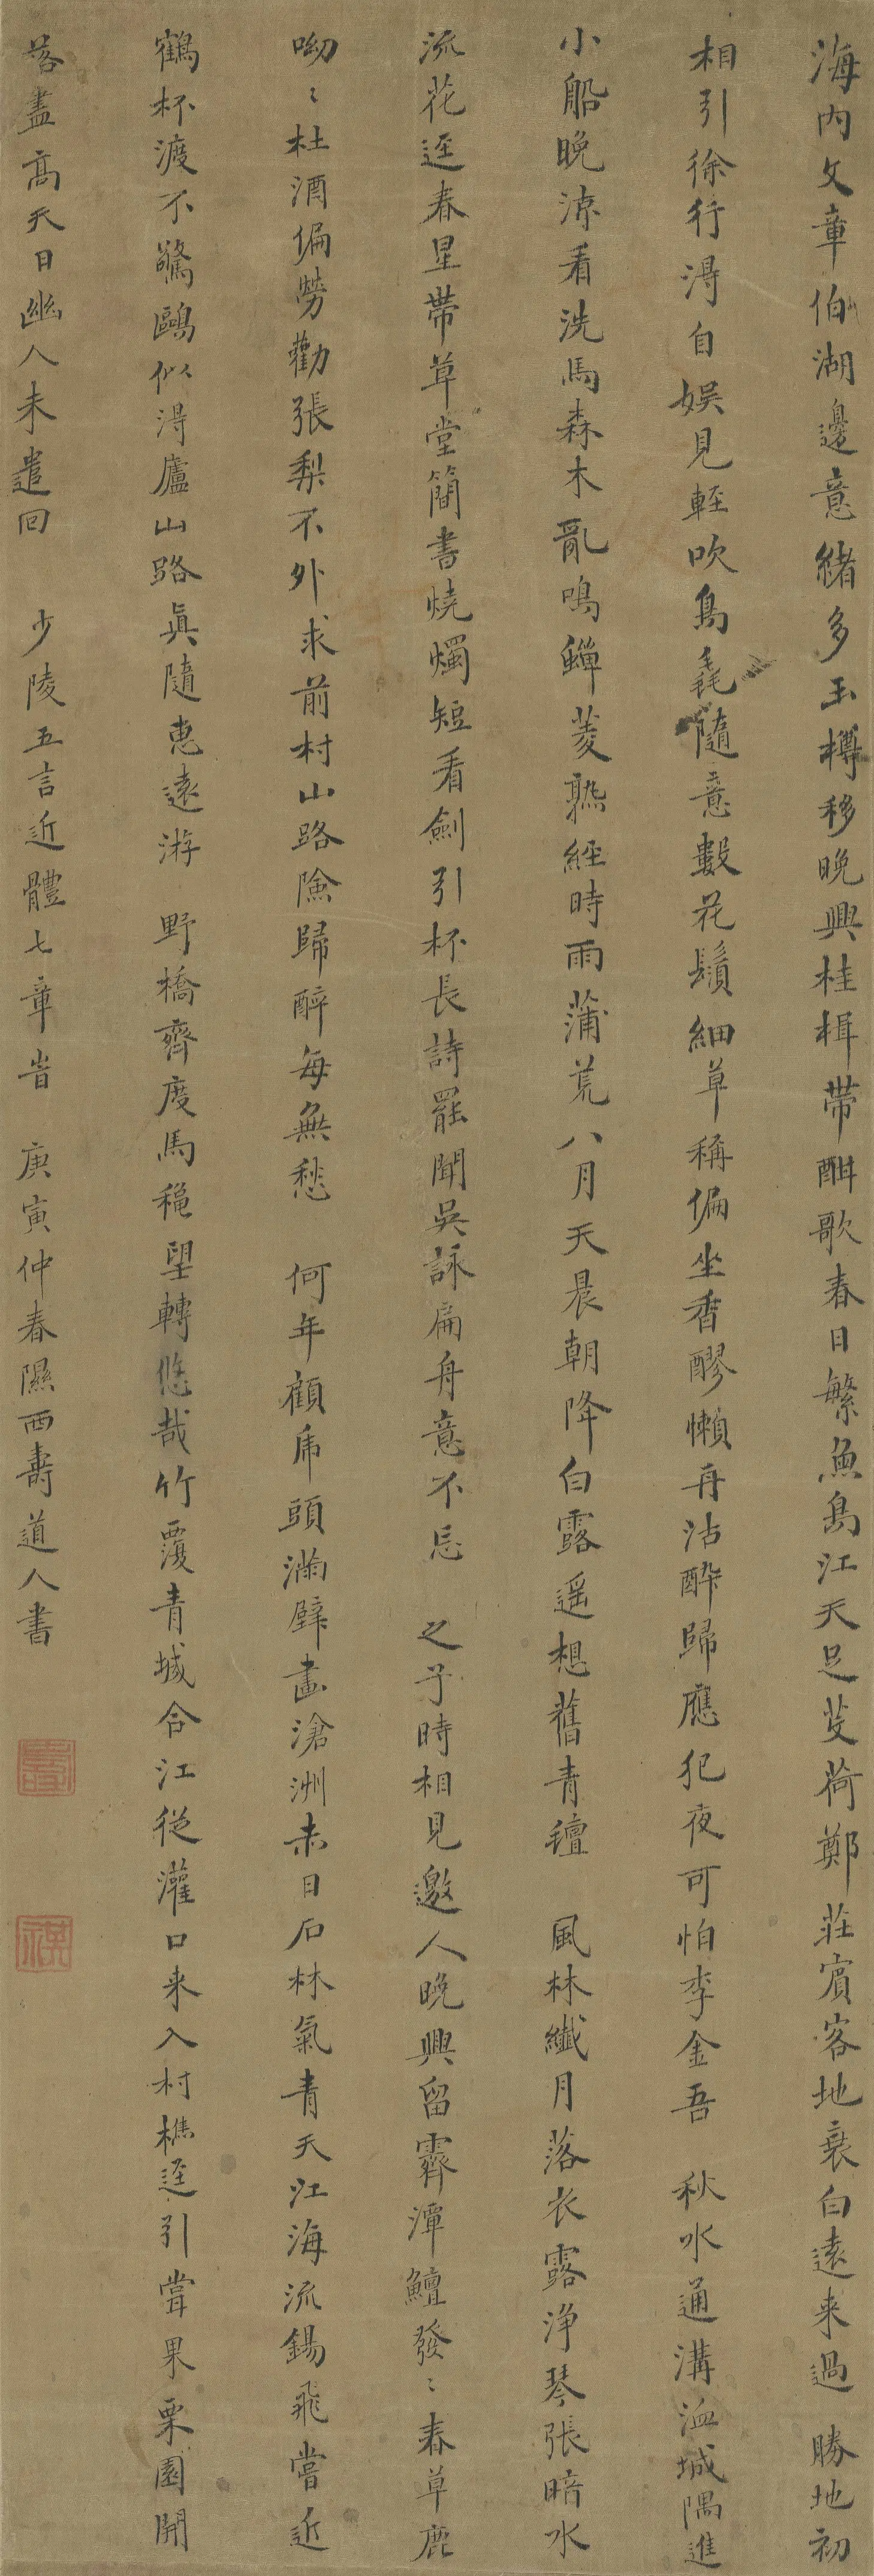 海內文章伯湖邊意緒多玉樽移晚興桂楫帶酣歌春日繁魚鳥江天足芰荷鄭莊賓客地衰白遠来過 勝地初
相引徐行得自娛見輕吹鳥毳隨意數花鬚細草稱偏坐香醪懶再沽醉歸應犯夜可怕李金吾 秋水通溝洫城隅進
小船晚涼看洗馬森木亂鳴蟬菱熟經時雨蒲荒八月天晨朝降白露遥想舊青氊 風林纖月落衣露浄琴張暗水
流花逕春星帶草堂簡書燒燭短看劍引杯長詩罷聞吳詠扁舟意不忘 之子時相見邀人晚興留霽潭鱣發〻春草鹿
呦〻杜酒偏勞勸張梨不外求前村山路險歸醉每無愁 何年顧虎頭滿壁畫滄洲赤日石林氣青天江海流錫飛嘗近
鶴杯渡不驚鷗似得廬山路眞隨惠遠游 野橋齊度馬穐望轉悠哉竹覆青城合江從灌口来入村樵逕引嘗果栗園開
落盡高天日幽人未遣回 少陵五言近體七章 庚寅仲春隰西壽道人書